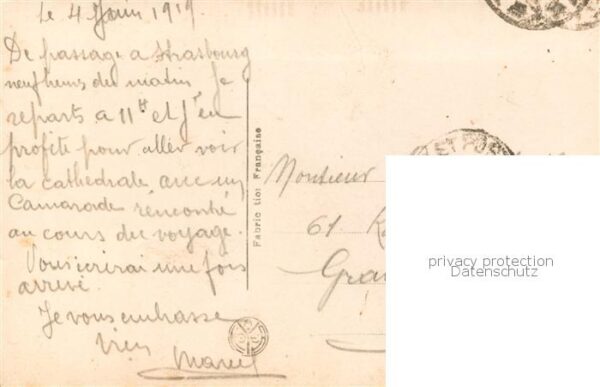 le 4 Juin 1919
De passage a Strasbourg
neuf heures du matin Je
reparts a 11H et J'en
profite pour aller voir
la cathedrale avec un
Camarade rencontré
au cours du voyage.
Vous ecrirai une fois
arrivé.
Je vous embrasse
bien
Marcel
Fabrication Française
Monsieur
61
Gra
ET POS
privacy protection
Datenschutz